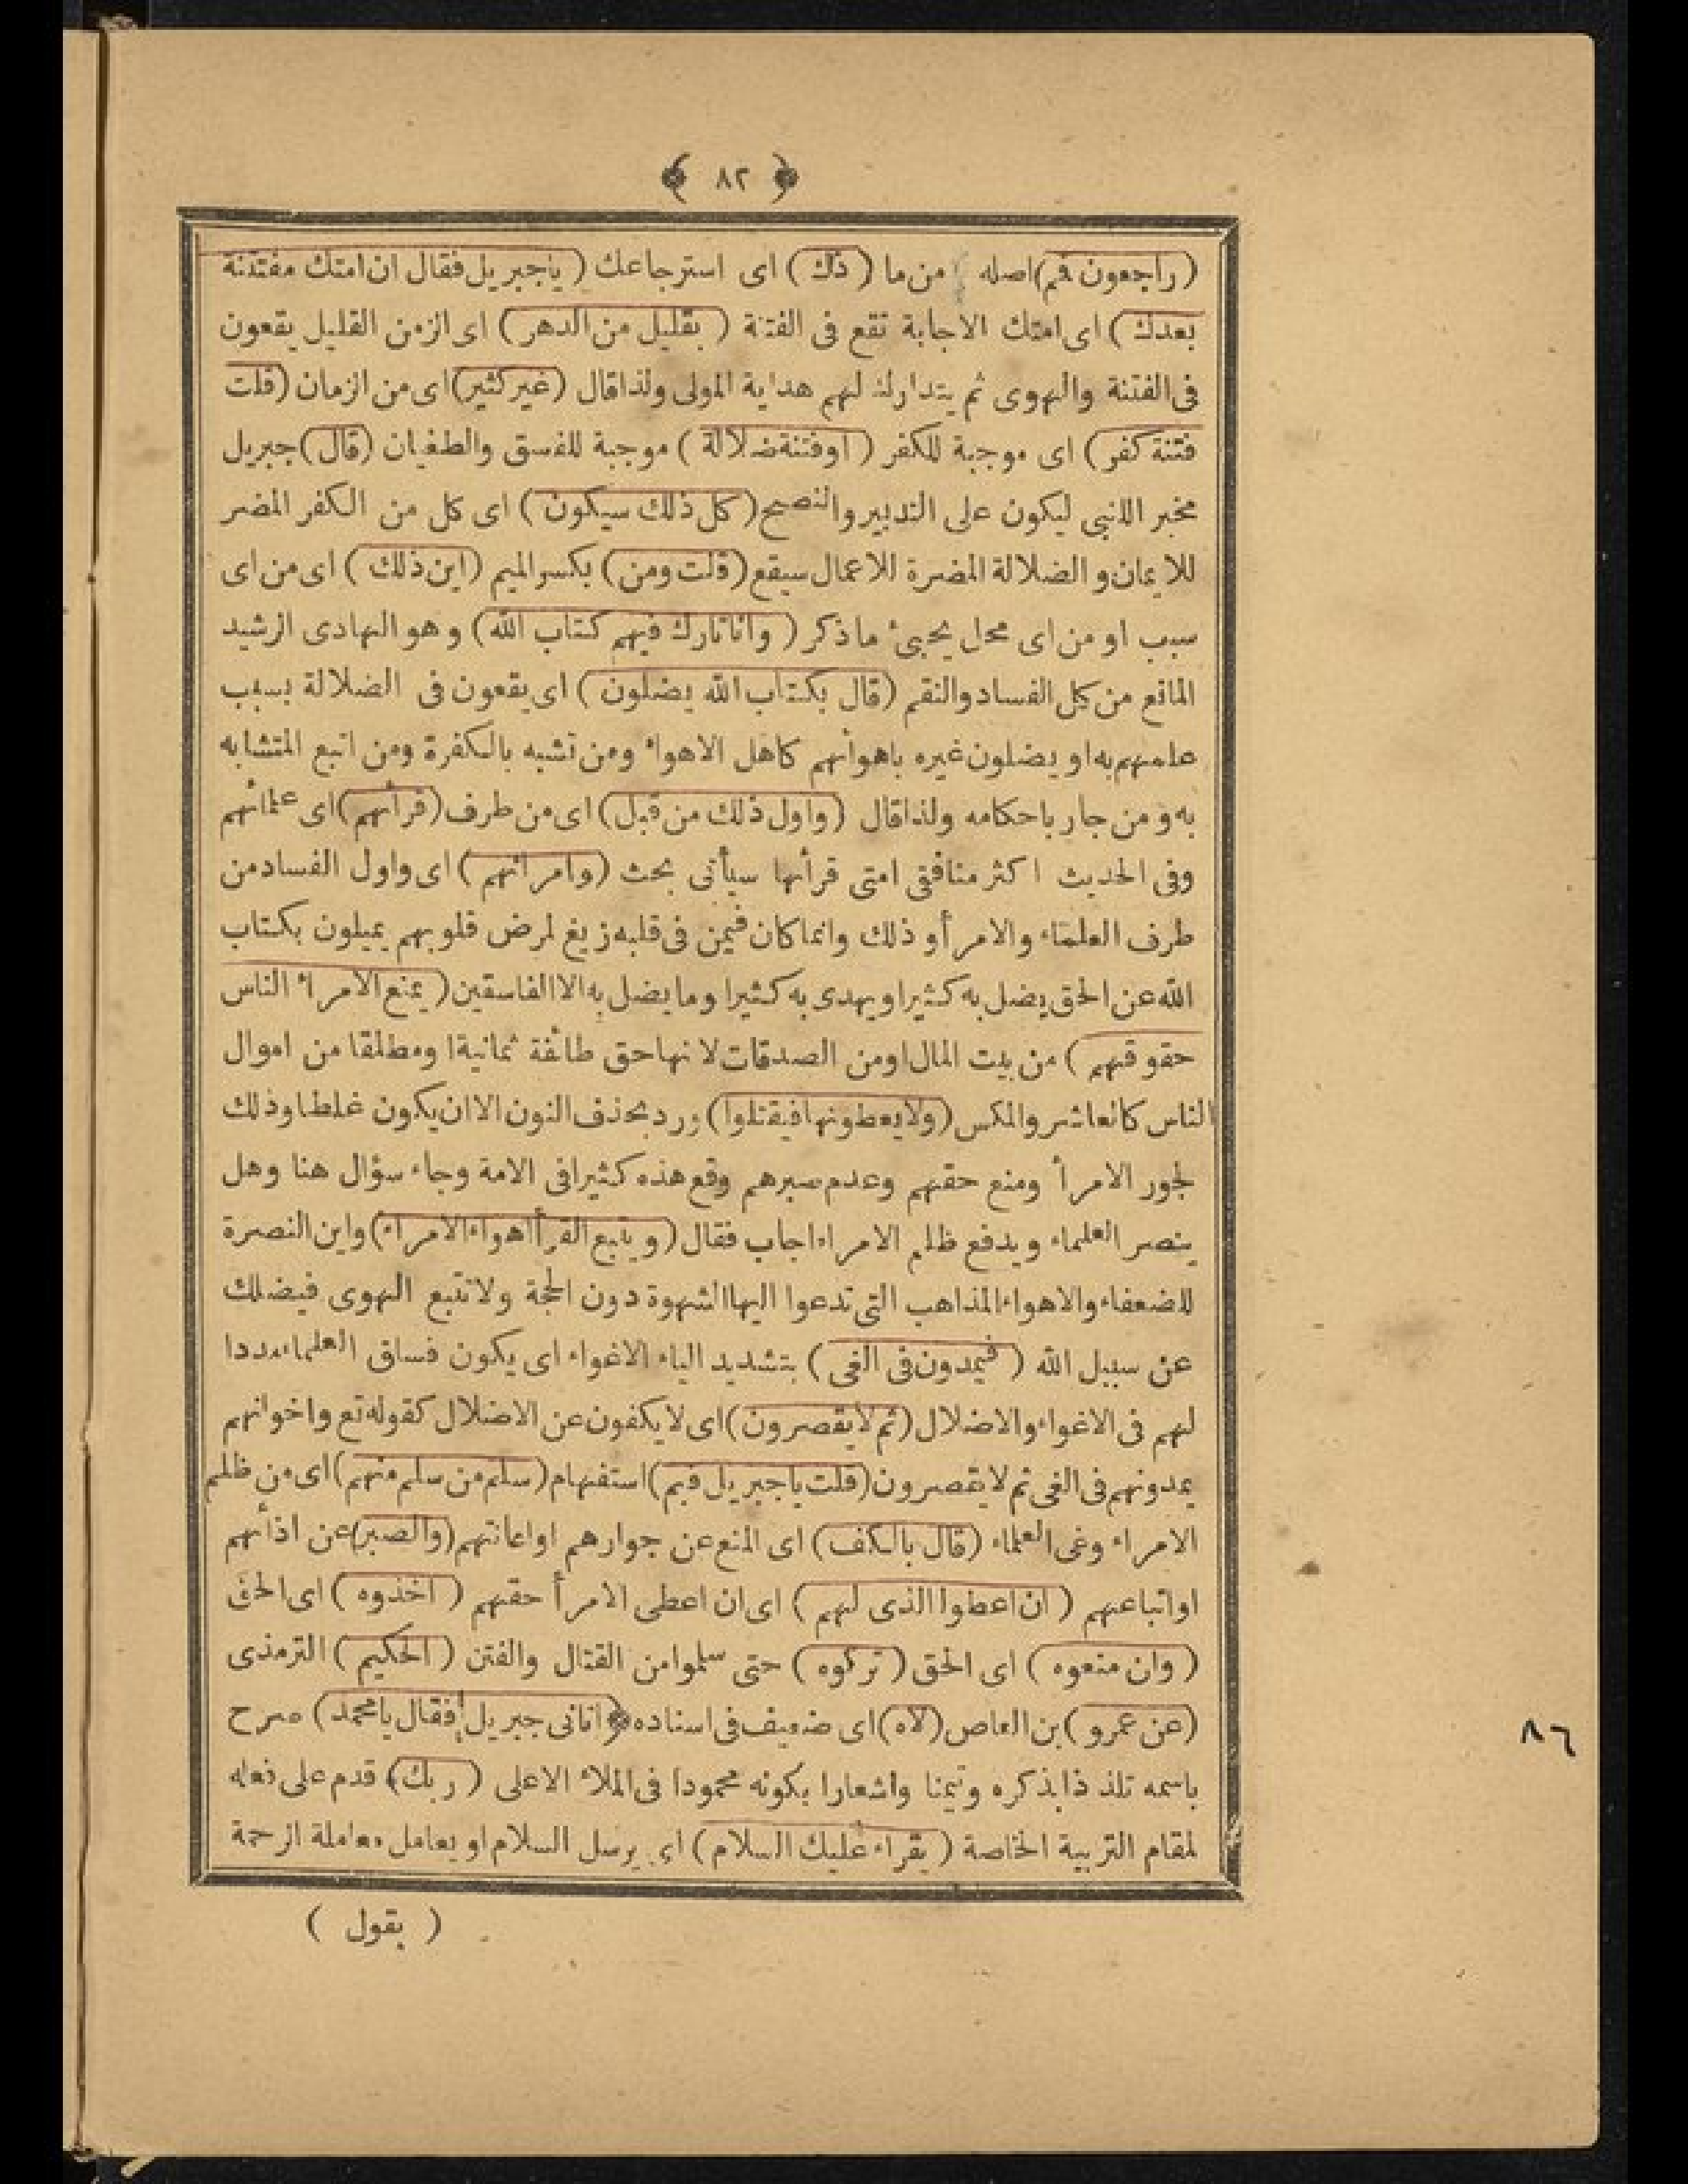 ﴿ ٨٢ ﴾
(راجعون فم) اصله من ما (ذك) اى استرجاعك (ياجبريل فقال ان امتك مفتتنة
بعدك) اى امتك الاجابة تقع فى الفتنة (بقليل من الدهر) اى الزمن القليل يقعون
فى الفتنة والهوى ثم يتدارك لهم هداية المولى ولذا قال (غير كثير) اى من الزمان (قلت
فتنة كفر) اى موجبة للكفر (اوفتنة ضلالة) موجبة للفسق والطغيان (قال) جبريل
مخبر اللنبى ليكون على التدبير والنصح (كل ذلك سيكون) اى كل من الكفر المضر
للايمان والضلالة المضرة للاعمال سيقع (قلت ومن) بكسر الميم (اين ذلك) اى من اى
سبب او من اى محل يجيئ ما ذكر (وانا تارك فيهم كتاب الله) وهو الهادى الرشيد
المانع من كل الفساد والنقم (قال بكتاب الله يضلون) اى يقعون فى الضلالة بسبب
علمهم به او يضلون غيره باهوائهم كاهل الاهواء ومن تشبه بالكفرة ومن اتبع المتشابه
به ومن جار باحكامه ولذا قال (واول ذلك من قبل) اى من طرف (قرأئهم) اى علمائهم
وفى الحديث اكثر منافقى امتى قرأئها سيأتى بحث (وامرائهم) اى واول الفساد من
طرف العلماء والامرأ وذلك وانما كان فيمن فى قلبه زيغ لمرض قلوبهم يميلون بكتاب
الله عن الحق يضل به كثيرا ويهدى به كثيرا وما يضل به الا الفاسقين (يمنع الامراء الناس
حقوقهم) من بيت المال او من الصدقات لانها حق طائفة ثمانية ا ومطلقا من اموال
الناس كالعاشر والمكس (ولا يعطونها فيقتلوا) ورد بحذف النون الا ان يكون غلطا وذلك
لجور الامرأ ومنع حقهم وعدم صبرهم وقع هذه كثيرا فى الامة وجاء سؤال هنا وهل
ينصر العلماء ويدفع ظلم الامراء اجاب فقال (ويتبع القرأ اهواء الامراء) واين النصرة
للضعفاء والاهواء المذاهب التى تدعوا اليها الشهوة دون الحجة ولا تتبع الهوى فيضلك
عن سبيل الله (فيمدون فى الغى) بتشديد الياء الاغواء اى يكون فساق العلماء مددا
لهم فى الاغواء والاضلال (ثم لا يقصرون) اى لا يكفون عن الاضلال كقوله تع واخوانهم
يمدونهم فى الغى ثم لا يقصرون (قلت ياجبريل فبم) استفهام (سلم من سلم منهم) اى من ظلم
الامراء وغى العلماء (قال بالكف) اى المنع عن جوارهم او اعانتهم (والصبر) عن اذأئهم
او اتباعهم (ان اعطوا الذى لهم) اى ان اعطى الامرأ حقهم (اخذوه) اى الحق
(وان منعوه) اى الحق (تركوه) حتى سلموا من القتال والفتن (الحكيم) الترمذى
(عن عمرو) بن العاص (لاه) اى ضعيف فى اسناده ﴿اتانى جبريل فقال يا محمد) صرح
باسمه تلذذا بذكره وتيمنا واشعارا بكونه محمودا فى الملاء الاعلى (ربك) قدم على فعله
لمقام التربية الخاصة (يقراء عليك السلام) اى يرسل السلام او يعامل معاملة الرحمة
(يقول)
٨٦